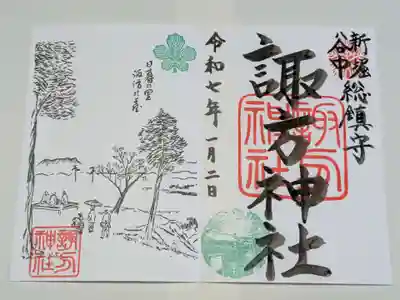 新堀
谷中
総鎮守
諏方神社
諏方
神社
令和七年一月二日
日暮の里
諏方の臺
諏方
神社